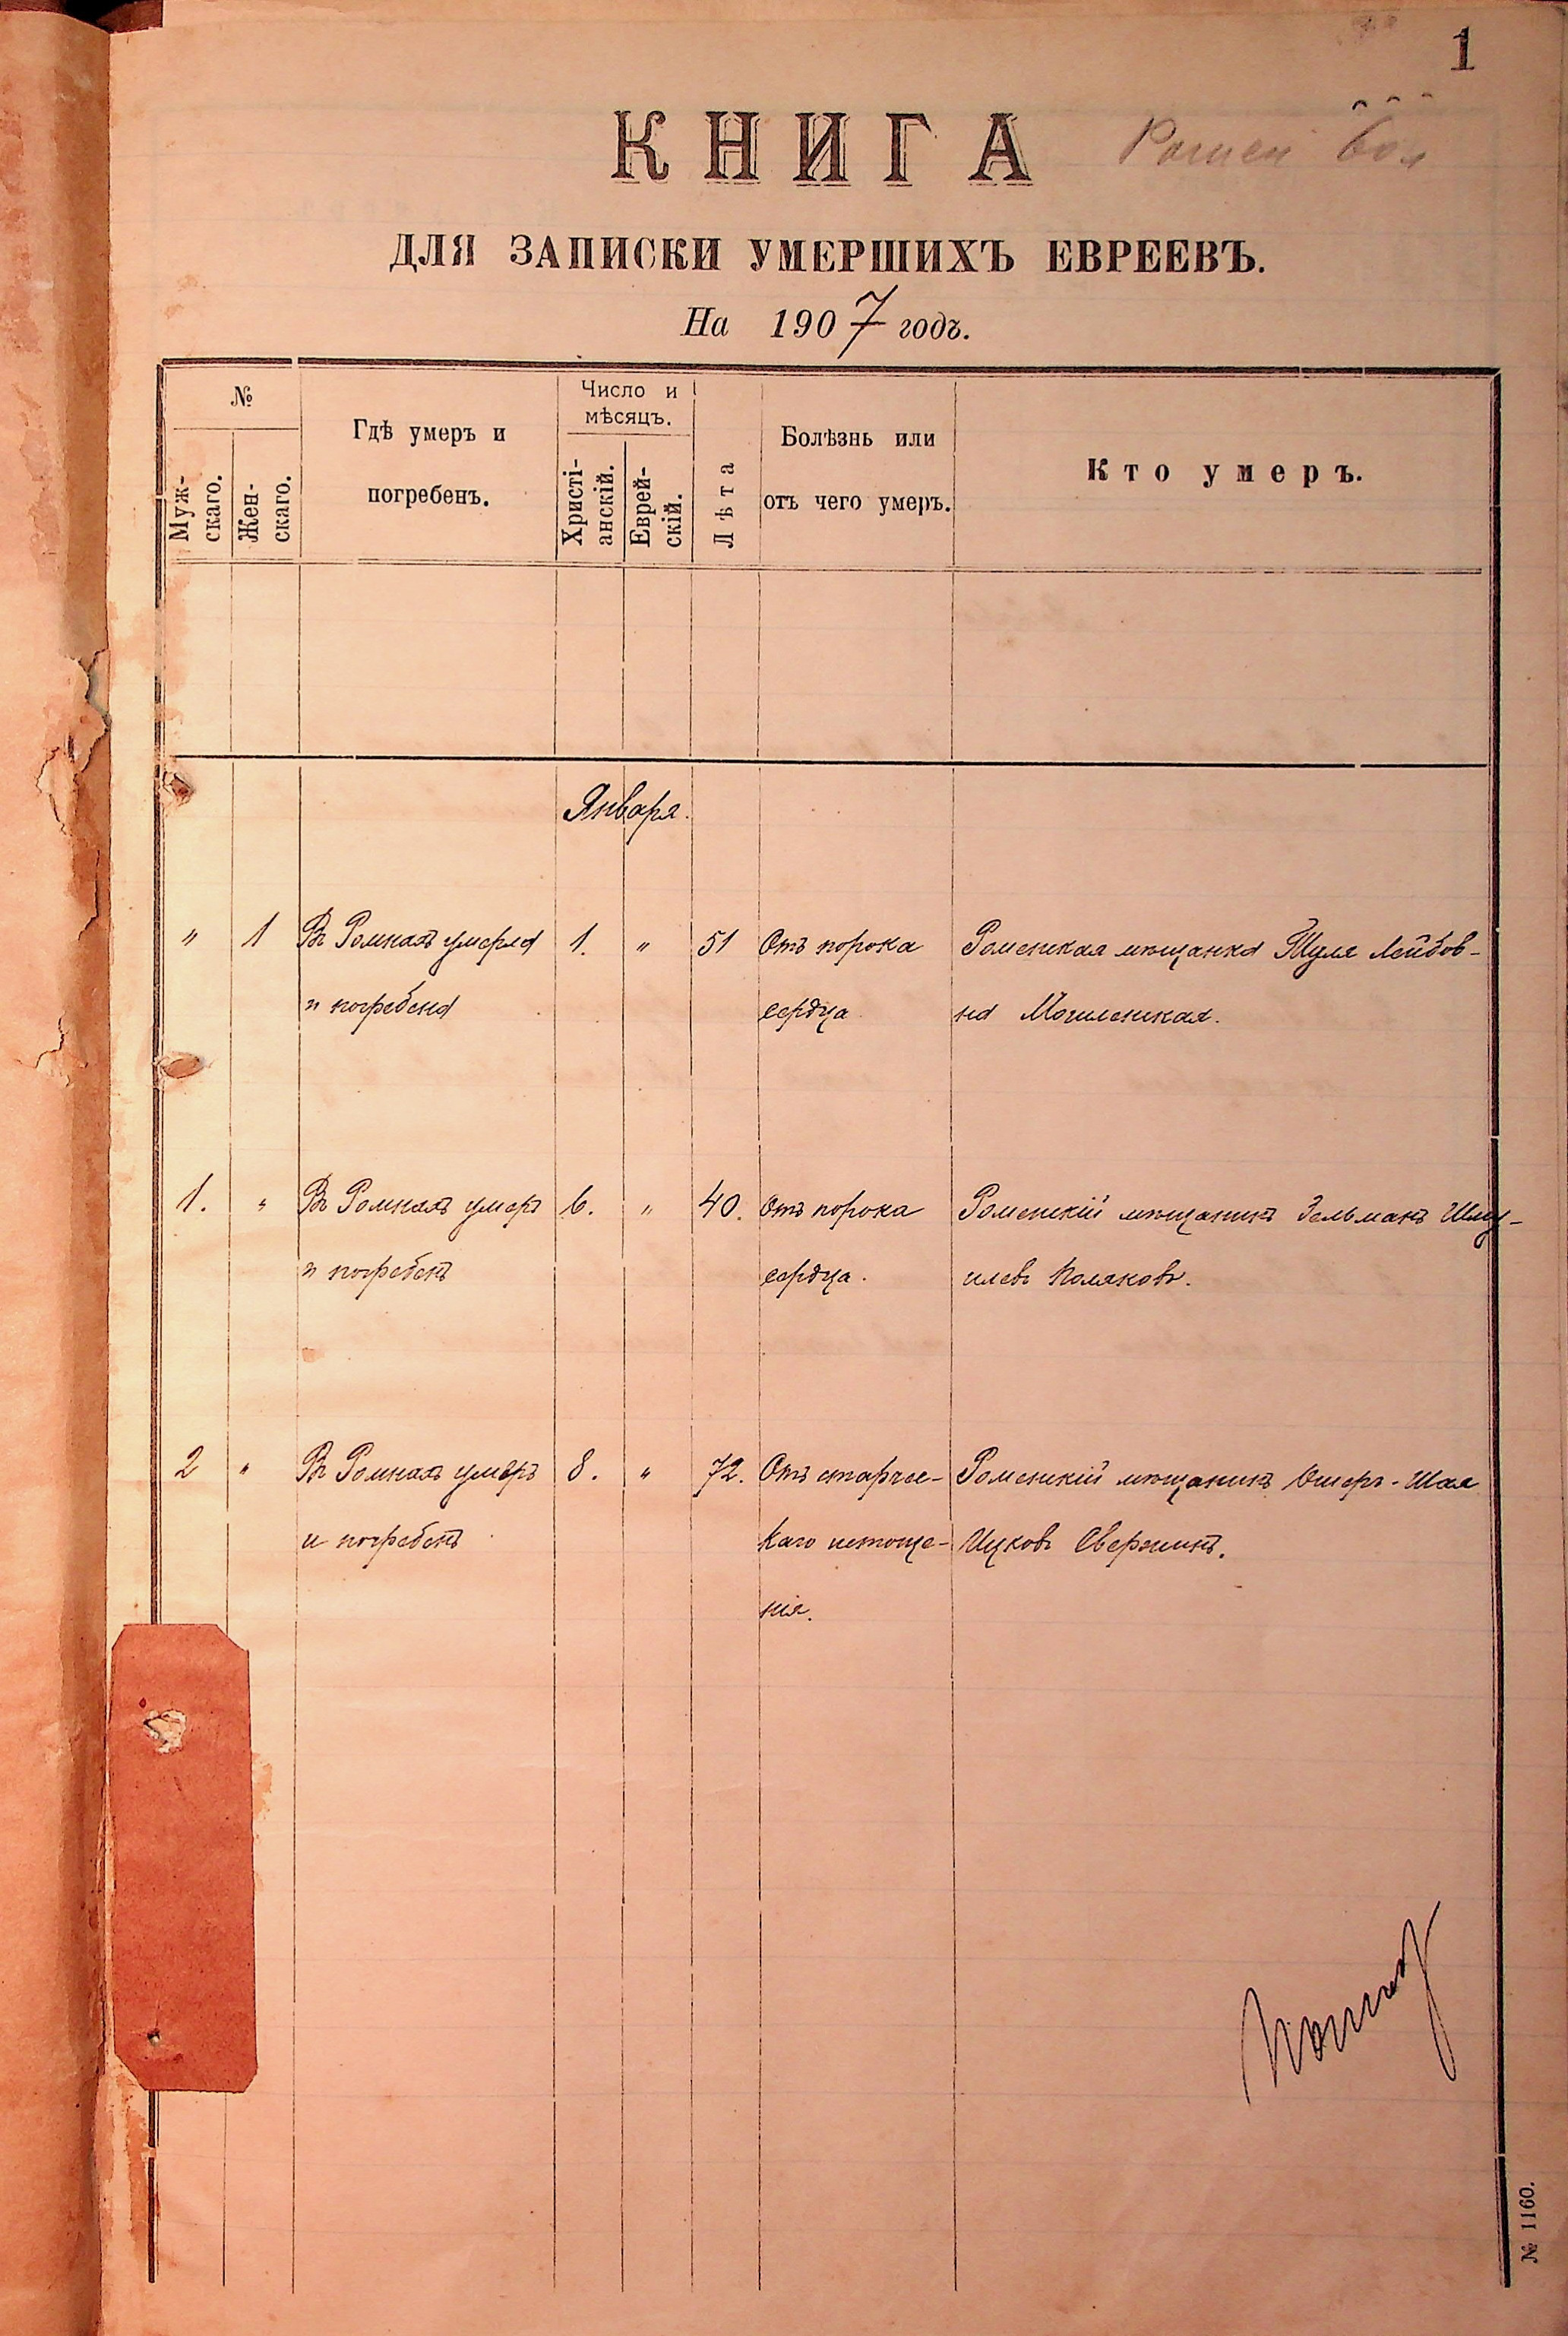 1
КНИГА
Ромен
ДЛЯ ЗАПИСКИ УМЕРШИХЪ ЕВРЕЕВЪ.
На 1907 годъ.
№
Муж-
скаго.
Жен-
скаго.
Гдѣ умеръ и
погребенъ.
Число и
мѣсяцъ.
Христі-
анскій.
Еврей-
скій.
Лѣта
Болѣзнь или
отъ чего умеръ.
Кто умеръ.
Января.
" 1 Въ Ромнахъ умерла 1. " 51 Отъ порока Роменская мѣщанка Шуля Лейбов-
и погребена сердца на Могилевская.
1. " Въ Ромнахъ умеръ 6. " 40. Отъ порока Роменскій мѣщанинъ Зельманъ Шму-
и погребенъ сердца. илевъ Поляковъ.
2 " Въ Ромнахъ умеръ 8. " 72. Отъ старчес- Роменскій мѣщанинъ Ошеръ-Шая
и погребенъ каго истоще- Ицковъ Свержинъ.
нія.
№ 1160.